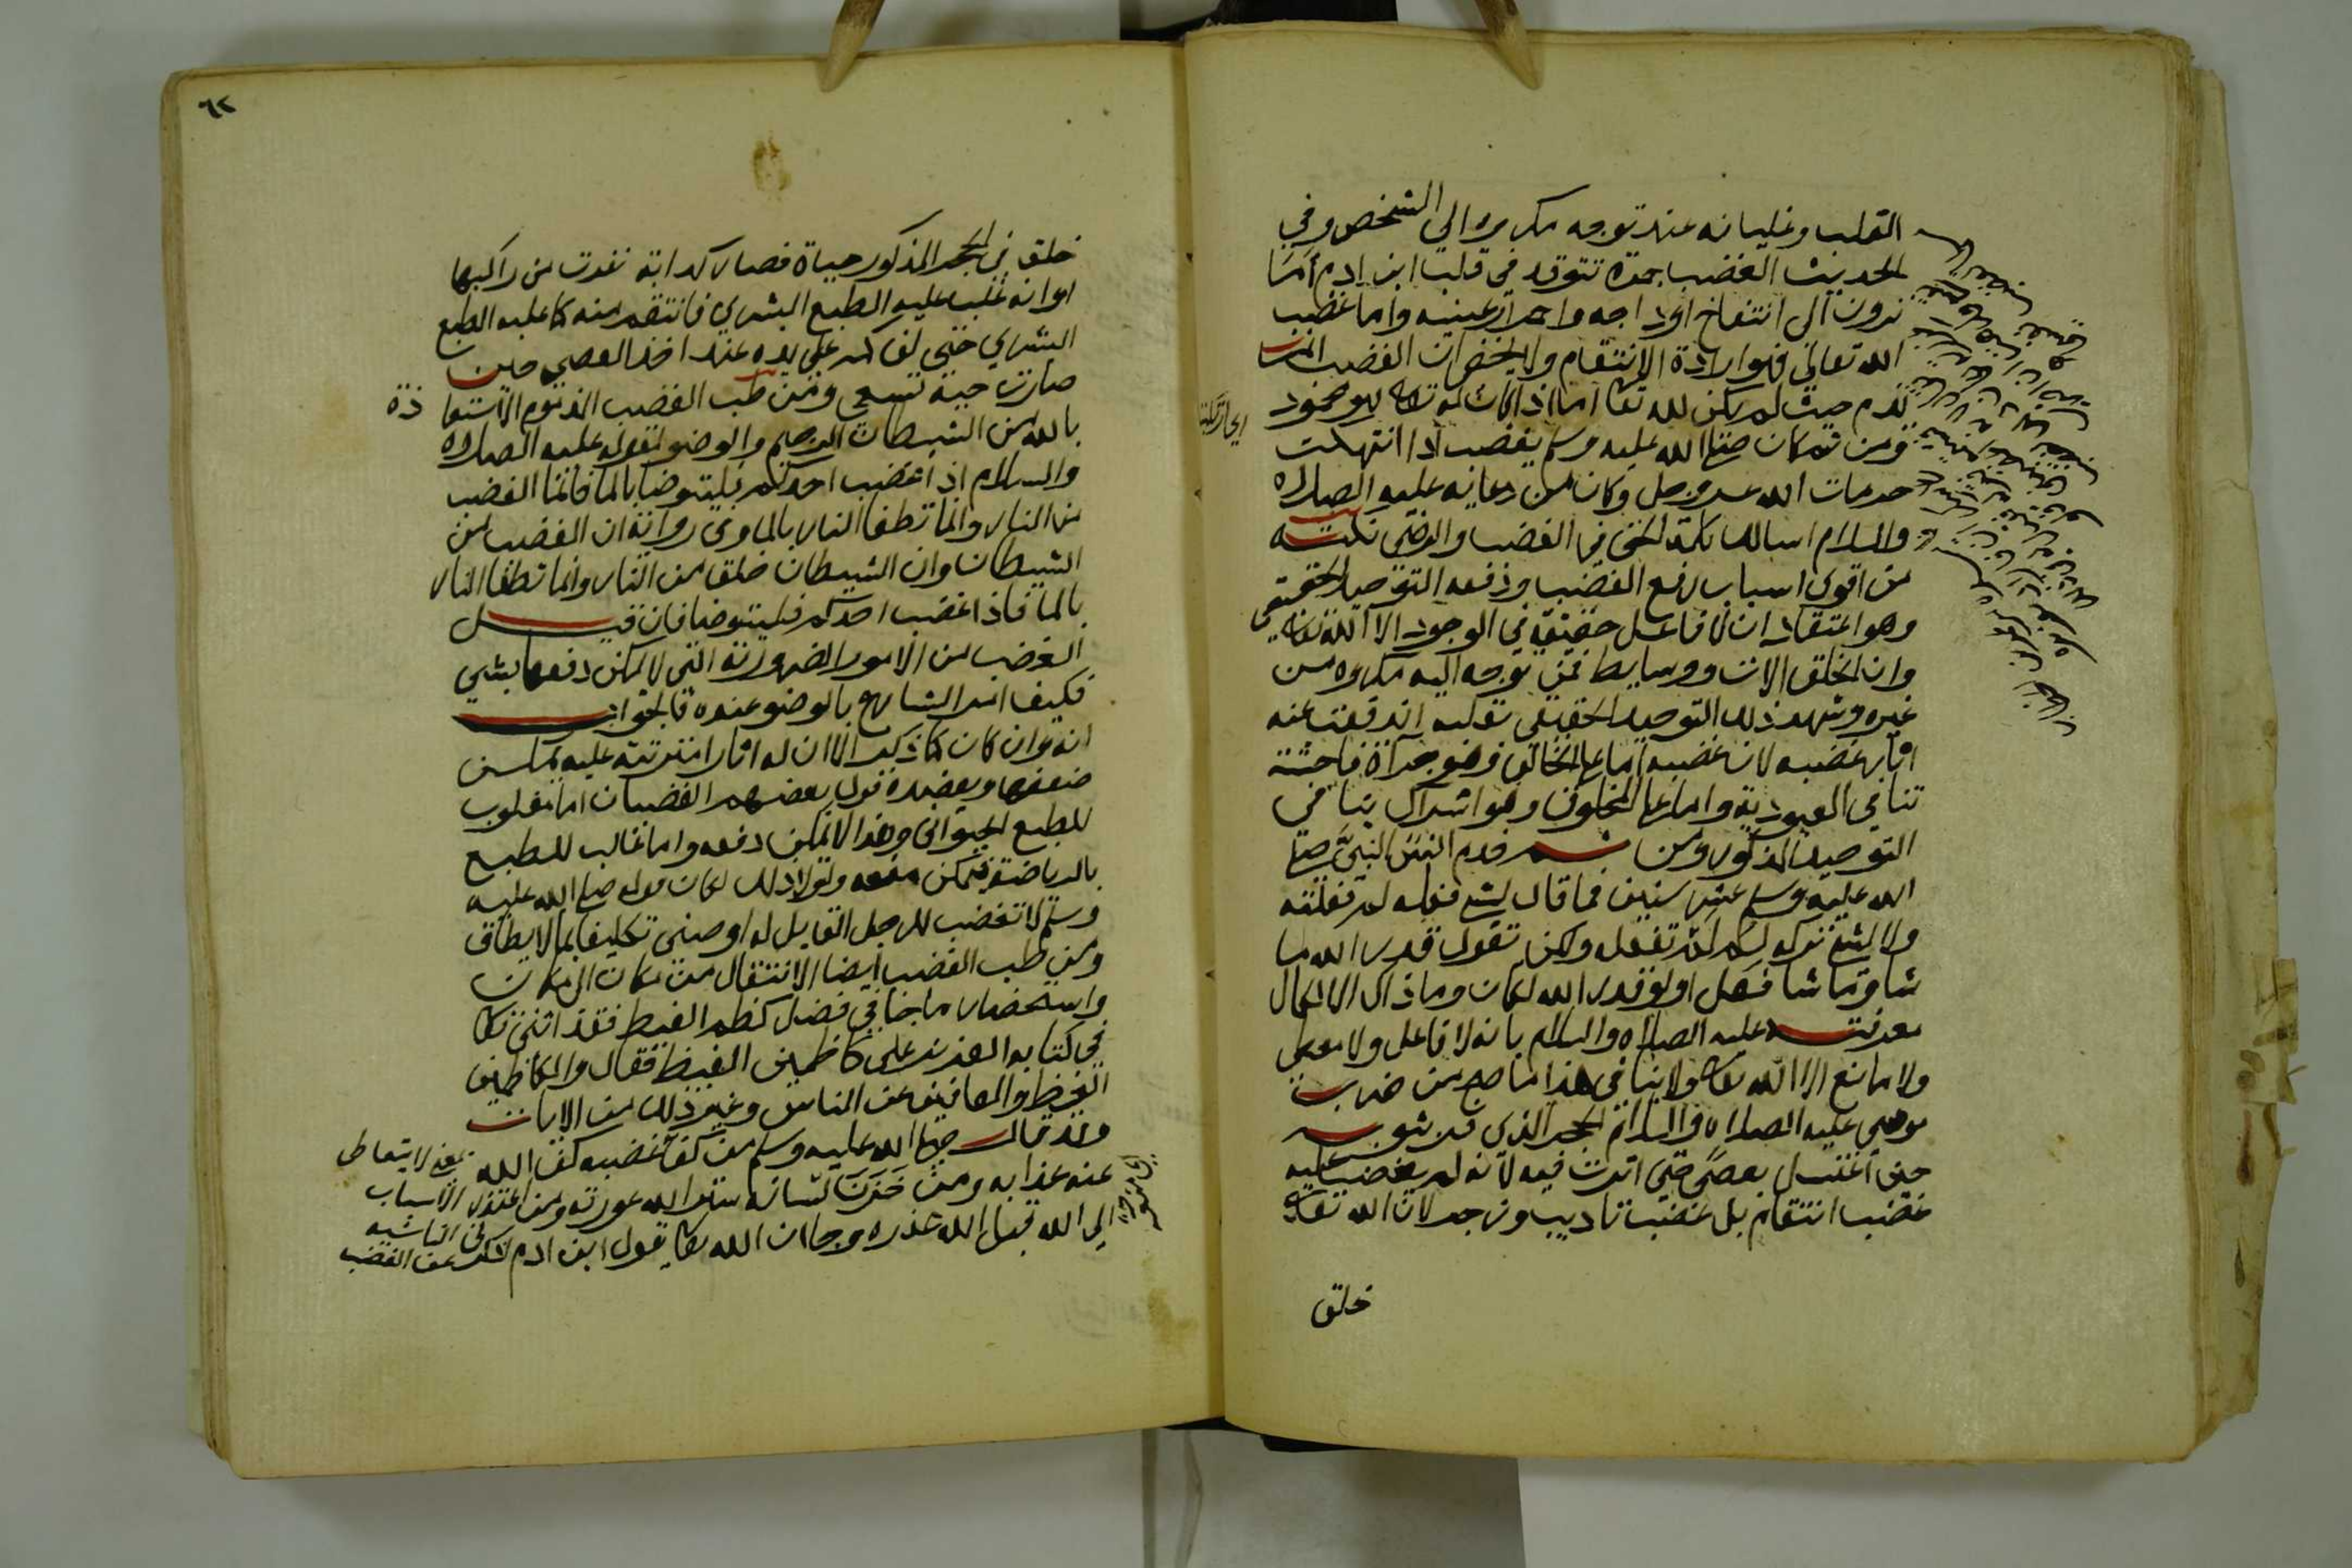 القلب وغليانه عند توجه مكروه الي الشخص وفي
الحديث الغضب جمرة تتوقد في قلب ابن ادم اما
ترون الي انتفاخ اوداجه واحمرار عينيه واما غضب
الله تعالي فهو ارادة الانتقام ولا يخفي ان الغضب انما
يذم حيث لم يكن لله تعا اما اذا كان له تعالي فهو محمود
ومن ثم كان صلي الله عليه وسلم يغضب اذا انتهكت
حرمات الله عز وجل وكان من دعائه عليه الصلاه
والسلام اسالك كلمة الحق في الغضب والرضي نكتة
من اقوي اسباب رفع الغضب ودفعه التوحيد الحقيقي
وهو اعتقاد ان لا فاعل حقيقة في الوجود الا الله تعالي
وان الخلق الات ووسايط فمن توجه اليه مكروه من
غيره وشهد ذلك التوحيد الحقيقي بقلبه اندفعت عنه
اثار غضبه لان غضبه اما علي الخالق فهو جراة فاحشة
تنافي العبودية واما علي المخلوق وهو اشراك ينافي
التوحيد المذكور ومن ثم خدم انس النبي صلي
الله عليه وسلم عشر سنين فما قال لشي فعله لم فعلته
ولا لشي تركه لم لم تفعل ولكن تقول قدر الله ما
شا وما شا فعل او لو قدر الله لكان وما ذاك الا لكمال
معرفته عليه الصلاه والسلام بانه لا فاعل ولا معطي
ولا مانع الا الله تعالي ولا ينافي هذا ما صح من ضرب
موسي عليه الصلاه والسلام الحجر الذي فر بثوبه
حين اغتسل بعصي حتي اثرت فيه لانه لم يغضب عليه
غضب انتقام بل غضب تاديب وزجر لان الله تعالي
خلق
٦٢
خلق في الحجر المذكور حياة فصار كدابة نفرت من راكبها
او انه غلب عليه الطبع البشري فانتقم منه كما غلبه الطبع
البشري حتي لف كمه علي يده عند اخذ العصي حين
صارت حية تسعي ومن طب الغضب المذموم الاستعاذة
بالله من الشيطان الرجيم والوضو لقوله عليه الصلاه
والسلام اذا غضب احدكم فليتوضا بالما فانما الغضب
من النار وانما تطفا النار بالما وفي رواية ان الغضب من
الشيطان وان الشيطان خلق من النار وانما تطفا النار
بالما فاذا غضب احدكم فليتوضا فان قيل
الغضب من الامور الضرورية التي لا يمكن دفعها بشي
فكيف امر الشارع بالوضو عنده فالجواب
انه وان كان كما ذكر الا ان له اثارا مترتبة عليه يمكن
ضعفها ويعضده قول بعضهم الغضبان اما مغلوب
للطبع الحيواني وهذا لا يمكن دفعه واما غالب للطبع
بالرياضة فيمكن منعه ولولا ذلك لكان قوله صلي الله عليه
وسلم لا تغضب للرجل القايل له اوصني تكليفا بما لا يطاق
ومن طب الغضب ايضا الانتقال من مكان الي مكان
واستحضار ما جا في فضل كظم الغيظ فقد اثني تعا
في كتابه العزيز علي كاظمين الغيظ فقال والكاظمين
الغيظ والعافين عن الناس وغير ذلك من الايات
وقد قال صلي الله عليه وسلم من كف غضبه كف الله
عنه عذابه ومن خزن لسانه ستر الله عورته ومن اعتذر
الي الله قبل الله عذره وجا ان الله تعا يقول ابن ادم
يعني لا يتعاطي
الاسباب
الناشية
عن الغضب